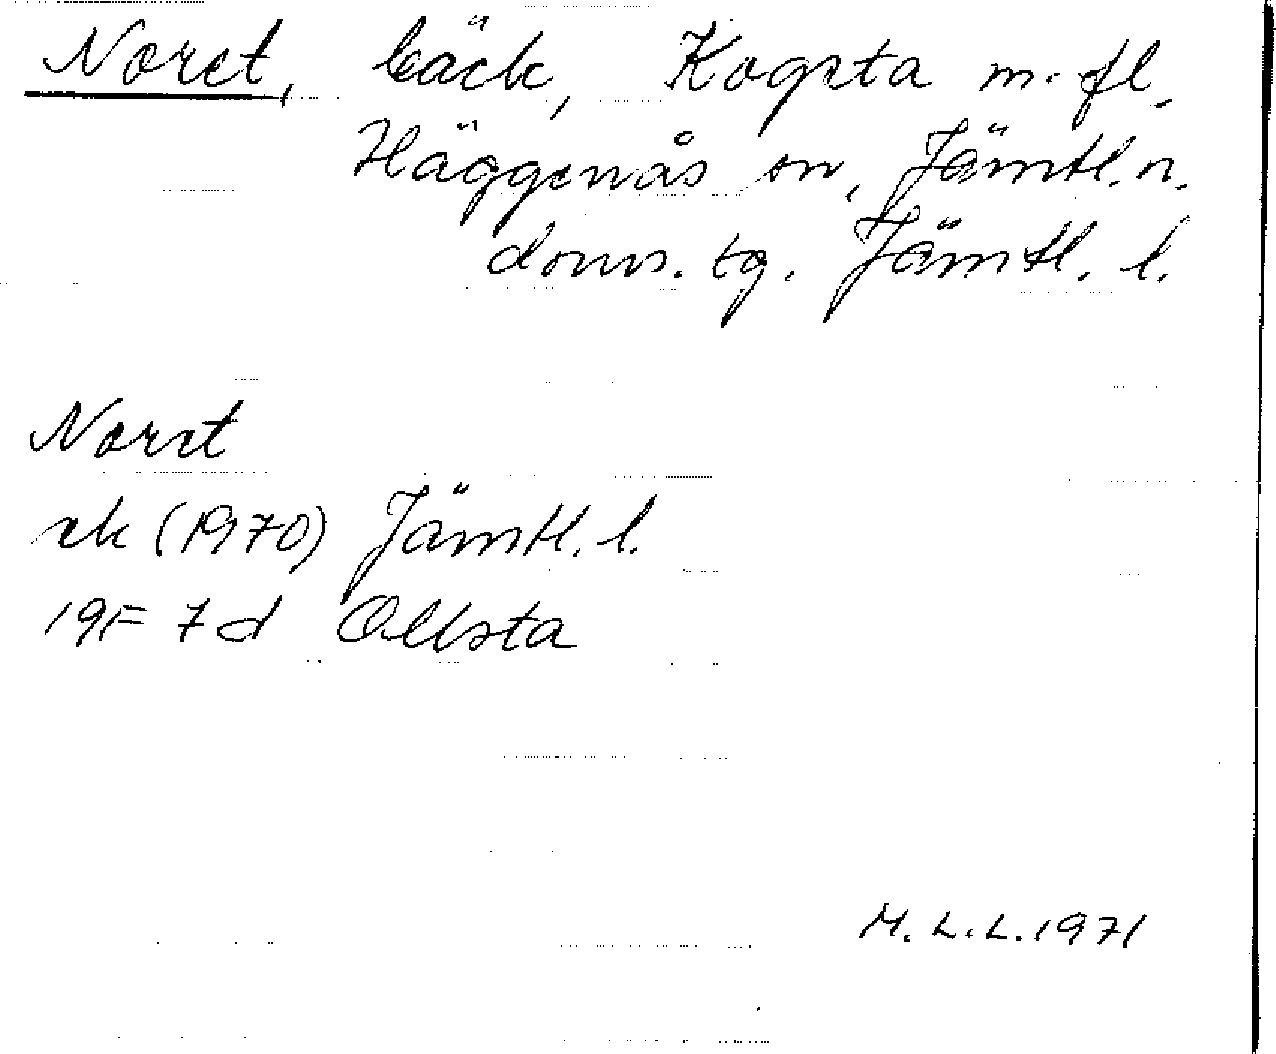 Noret, bäck, Kogsta m. fl.
Häggenås sn, Jämtl. n.
doms. tg. Jämtl. l.
Noret
ek (1970) Jämtl. l.
19F 7d Ollsta
M. L. L. 1971